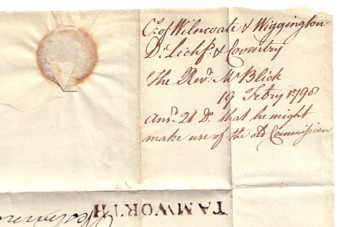 Cs. of Wilncoate & Wiggington
D. Lichf. & Coventry
The Revd. Mr Blick
19 Febry 1798
Ansd. 21 Do. that he might
make use of the old Commission
TAMWORTH